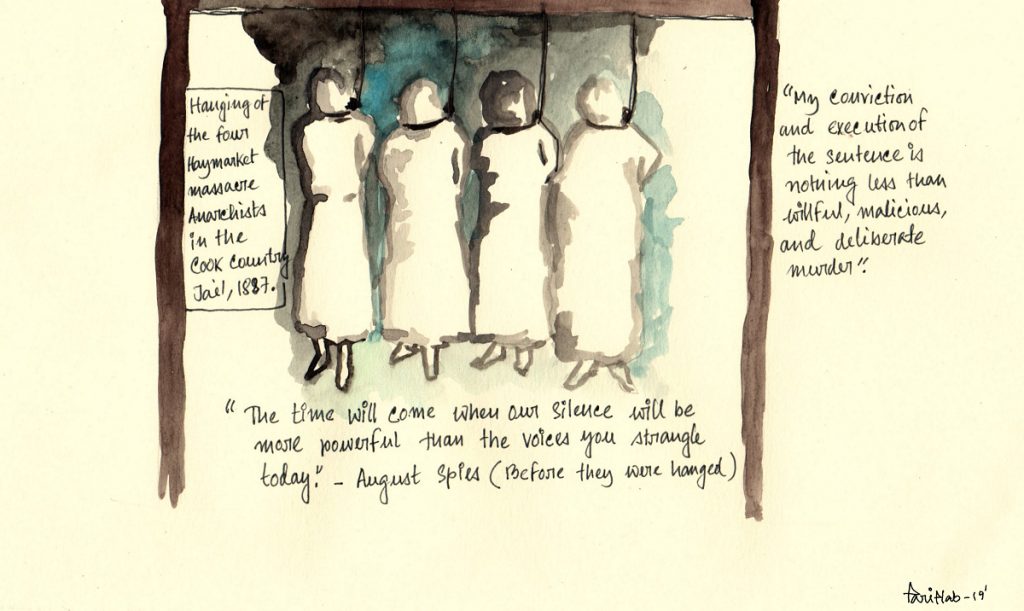 Hanging of
the four
Haymarket
massacre
Anarchists
in the
Cook Country
Jail, 1887.
"My conviction
and execution of
the sentence is
nothing less than
willful, malicious,
and deliberate
murder".
"The time will come when our silence will be
more powerful than the voices you strangle
today". - August Spies (Before they were hanged)